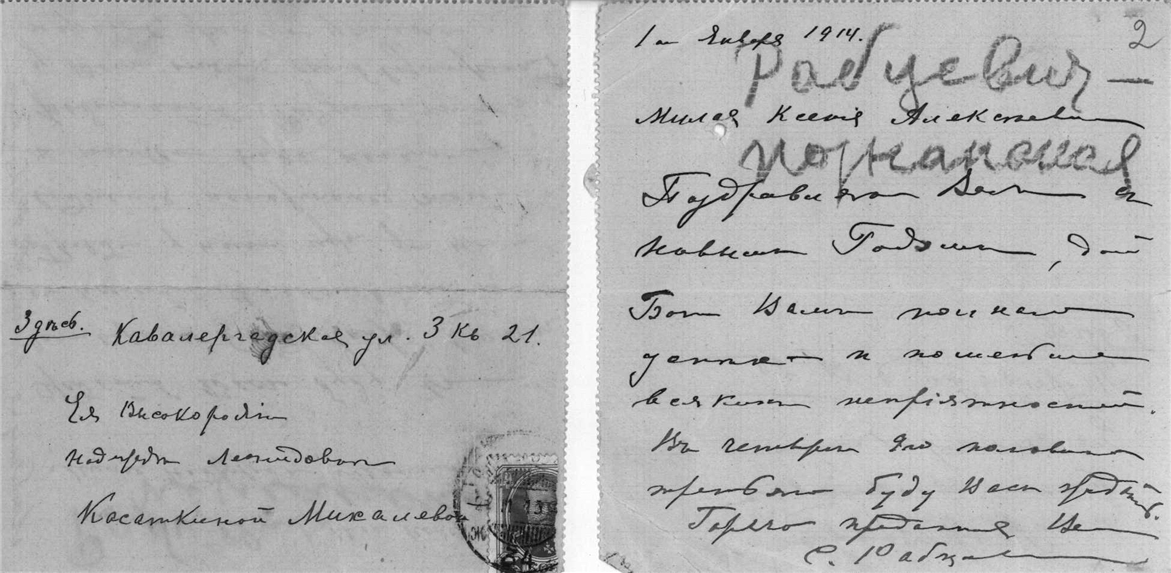 Здѣсь. Кавалергадская ул. 3 кв 21.
Ея Высокородію
Леонидовнѣ
Касаткиной Михалевой
1го Января 1914.
2
Рабцевич —
Милая Ксенія Алексѣевна
Поздравляю Васъ съ
Новымъ Годомъ, дай
Богъ Вамъ полнаго
и поменьше
всякихъ непріятностей.
Въ четверг въ половинѣ
третьяго буду Васъ ждать.
Горячо преданная Вамъ
С. Рабцевич